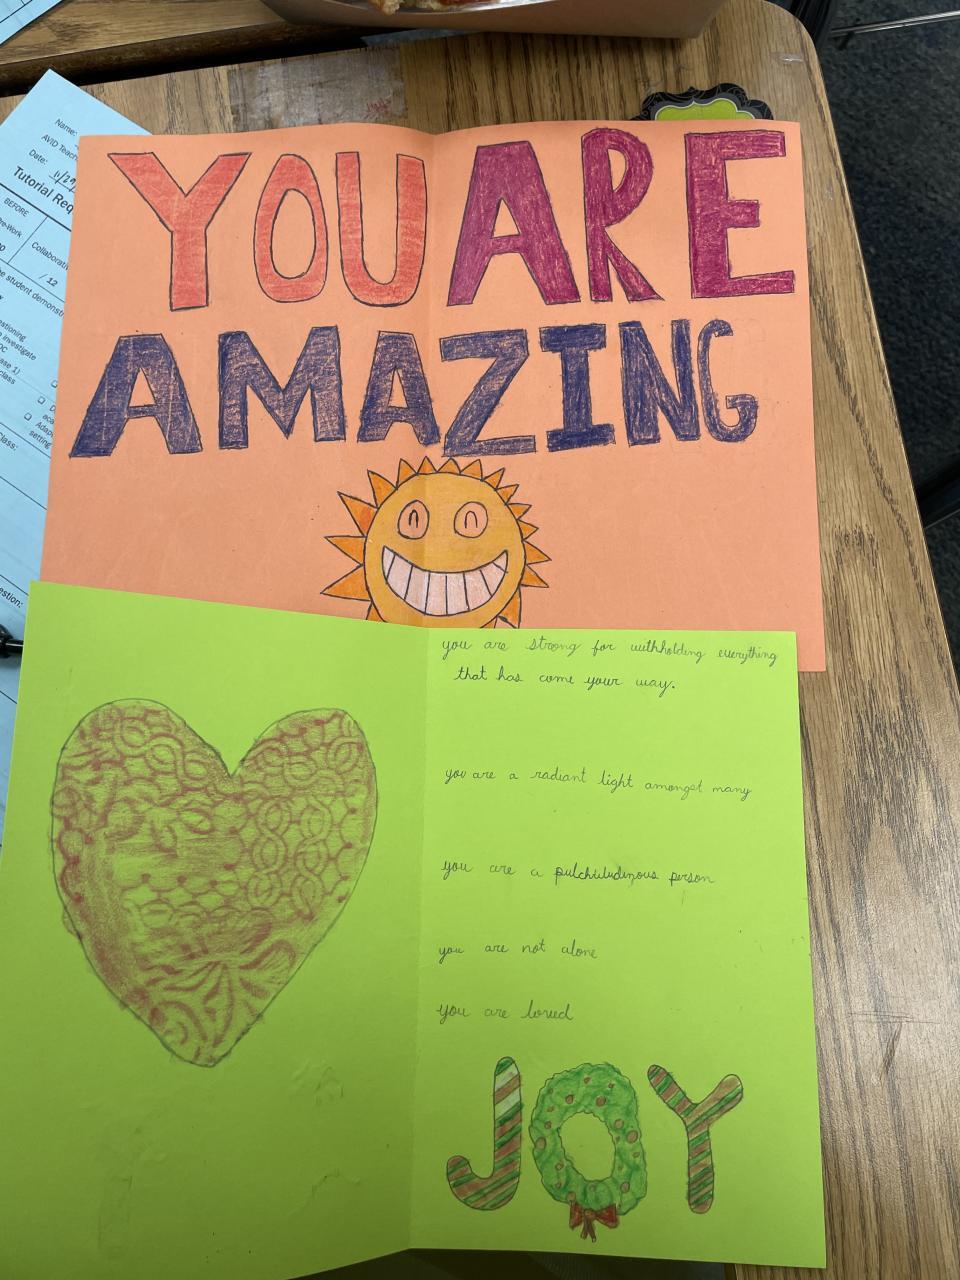 YOU ARE
AMAZING
you are strong for withholding everything
that has come your way.
you are a radiant light amongst many
you are a pulchuludinous person
you are not alone
you are loved
JOY
Name:
AVID Teach
Date:
11/29
Tutorial Req
BEFORE
re-Work
Collaborativ
/ 12
e student demonst
estioning
e investigate
ase 1)
class
setting
Class:
estion: